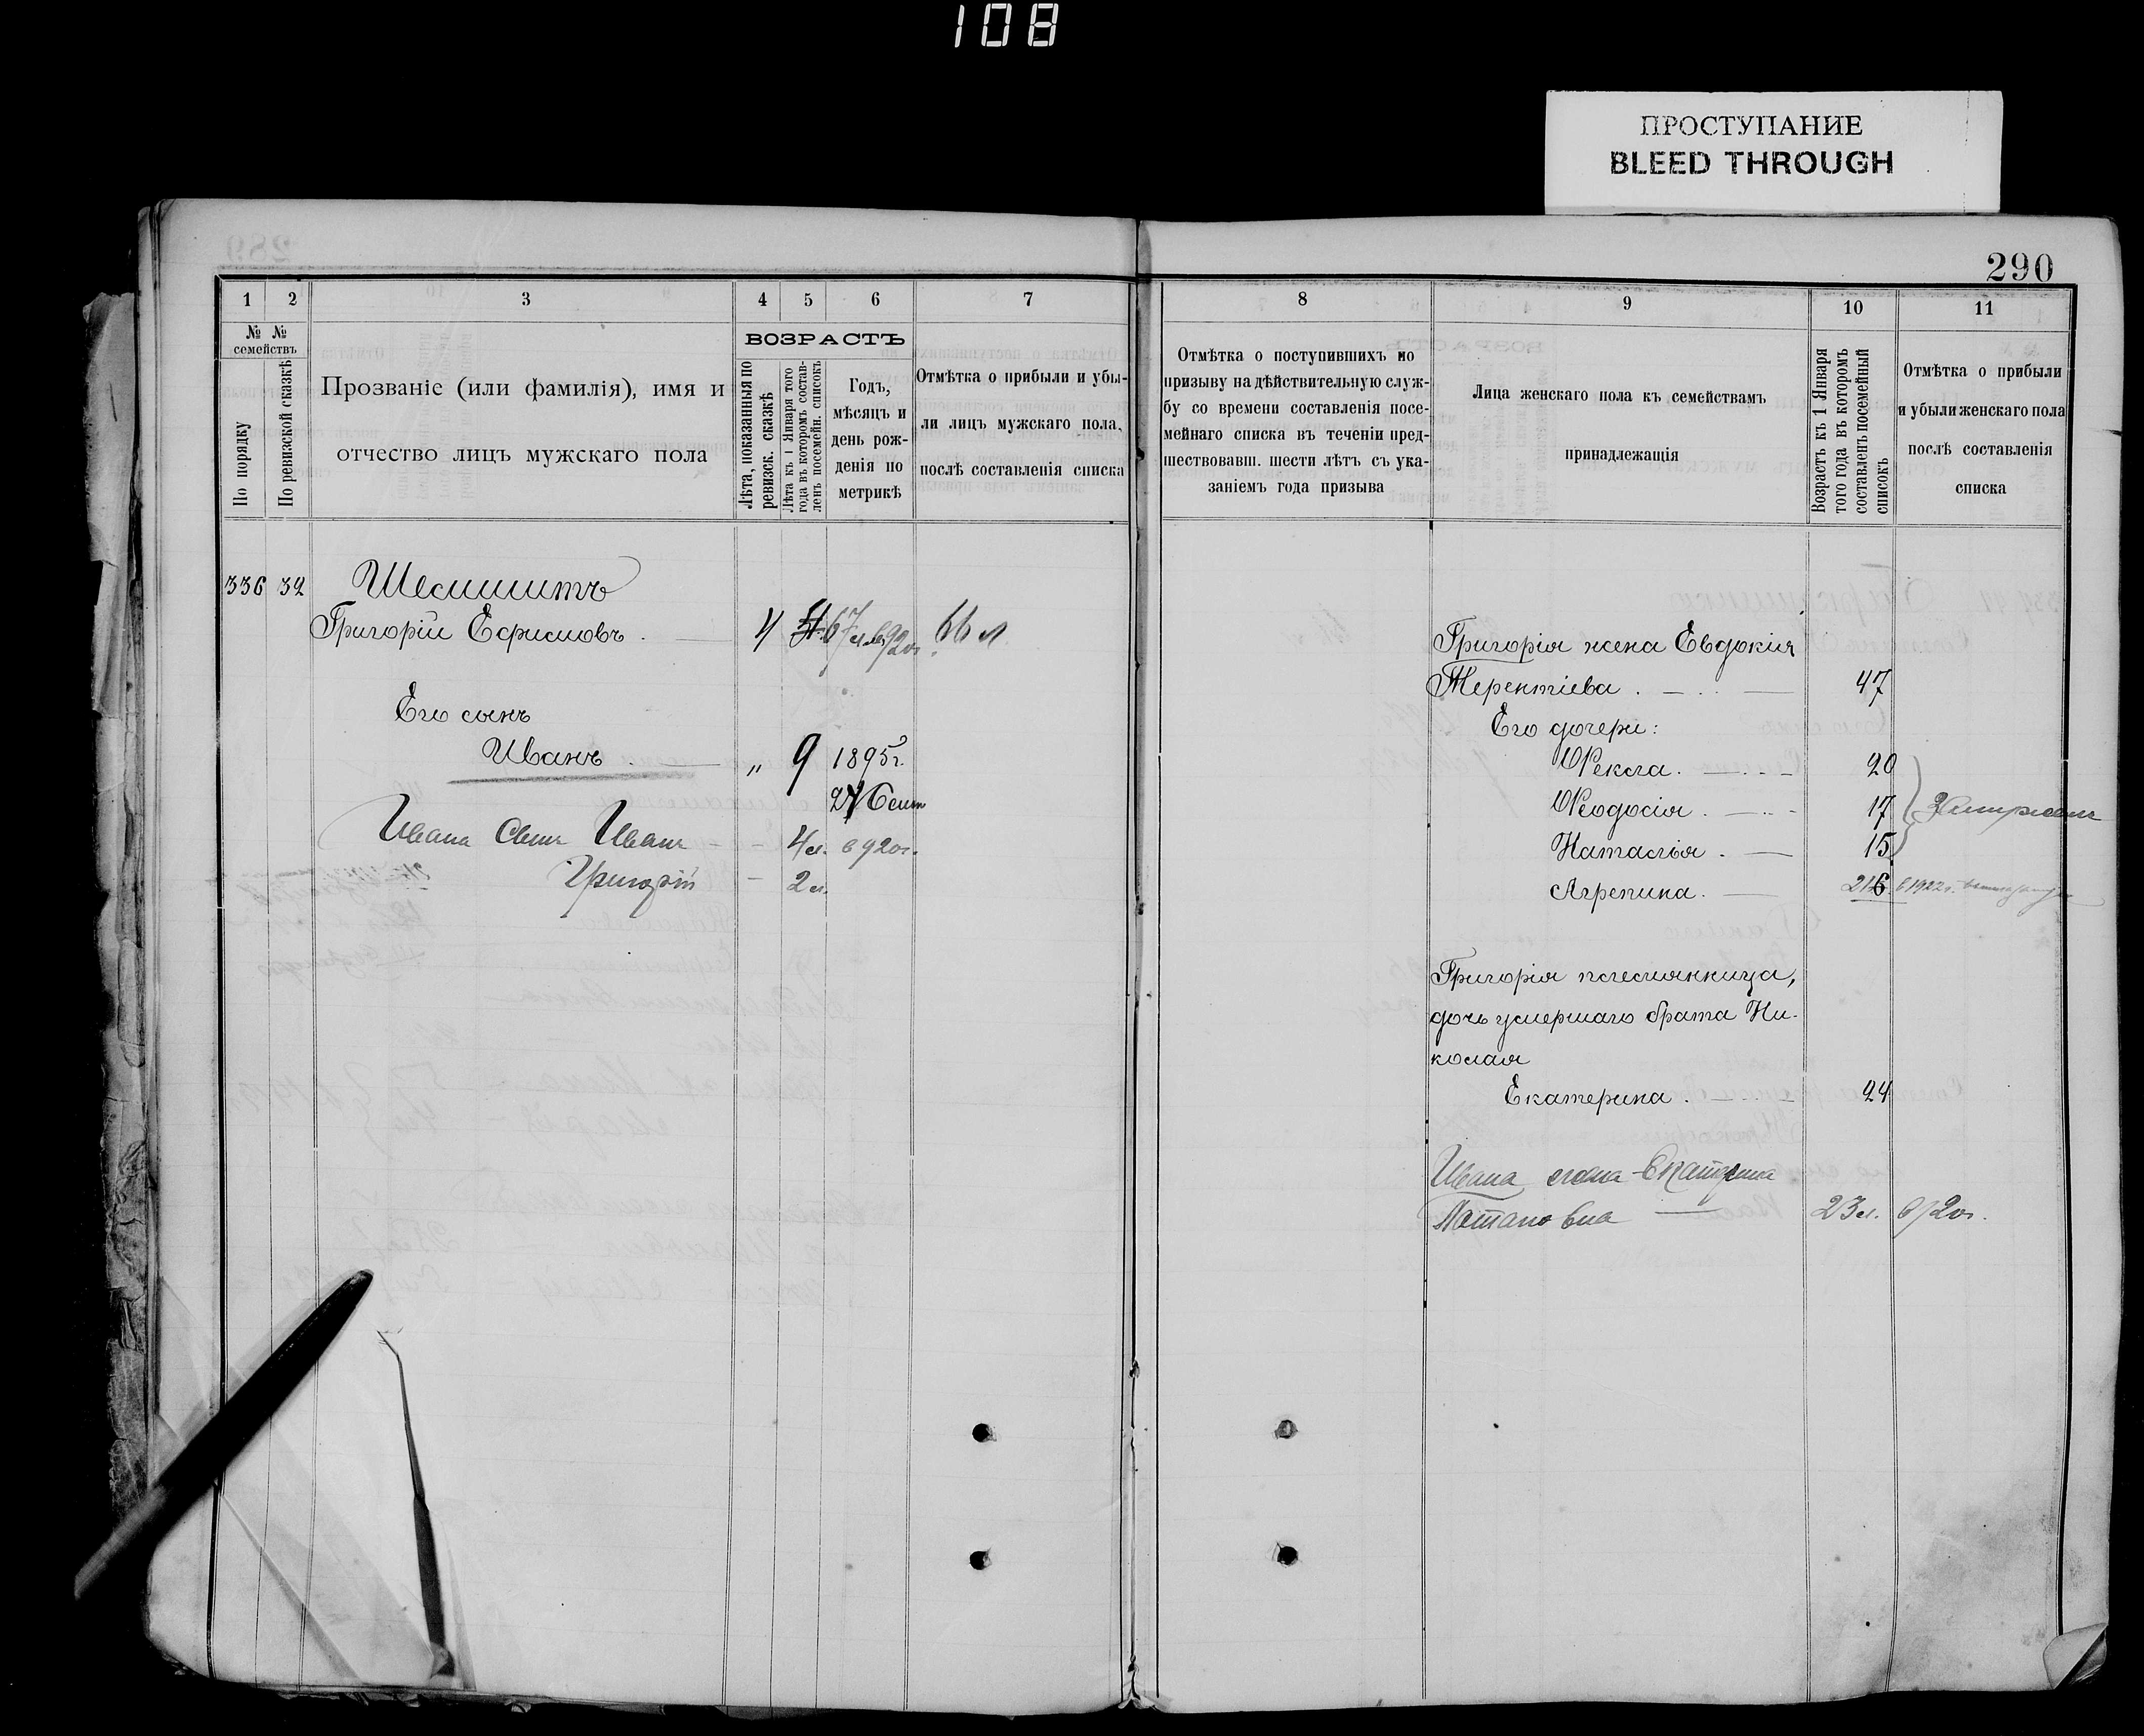 108
ПРОСТУПАНИЕ
BLEED THROUGH
290
1 2 3 4 5 6 7
№ № семействъ
По порядку
По ревизской сказкѣ
Прозваніе (или фамилія), имя и
отчество лицъ мужскаго пола
ВОЗРАСТЪ
Лѣта, показанныя по
ревизск. сказкѣ
Лѣта къ 1 Января того
года въ которомъ состав-
ленъ посемейн. списокъ
Годъ,
мѣсяцъ и
день рож-
денія по
метрикѣ
Отмѣтка о прибыли и убы-
ли лицъ мужскаго пола,
послѣ составленія списка
336 32
Григорій Ефимовъ . 4 67 л. в 920г. 66 л
Его сынъ
Иванъ . „ 9 1895г.
Ивана Сынъ Иванъ - - 4 л. в 920г.
Григорій - 2 л.
8 9 10 11
Отмѣтка о поступившихъ по
призыву на дѣйствительную служ-
бу со времени составленія посе-
мейнаго списка въ теченіи пред-
шествовавш. шести лѣтъ съ ука-
заніемъ года призыва
Лица женскаго пола къ семействамъ
принадлежащія
Возрастъ къ 1 Января
того года въ которомъ
составленъ посемейный
списокъ
Отмѣтка о прибыли
и убыли женскаго пола
послѣ составленія
списка
Григорія жена Евдокія
Терентіева . 47
Его дочери:
Ѳекла . 20
Ѳеодосія . 17
Наталія . 15
Агрепина . 6 в 1922г.
Григорія племянница,
дочь умершаго брата Ни-
колая
Екатерина . 24
Ивана жена Екатерина
Потаповна 23 л. в 920г.